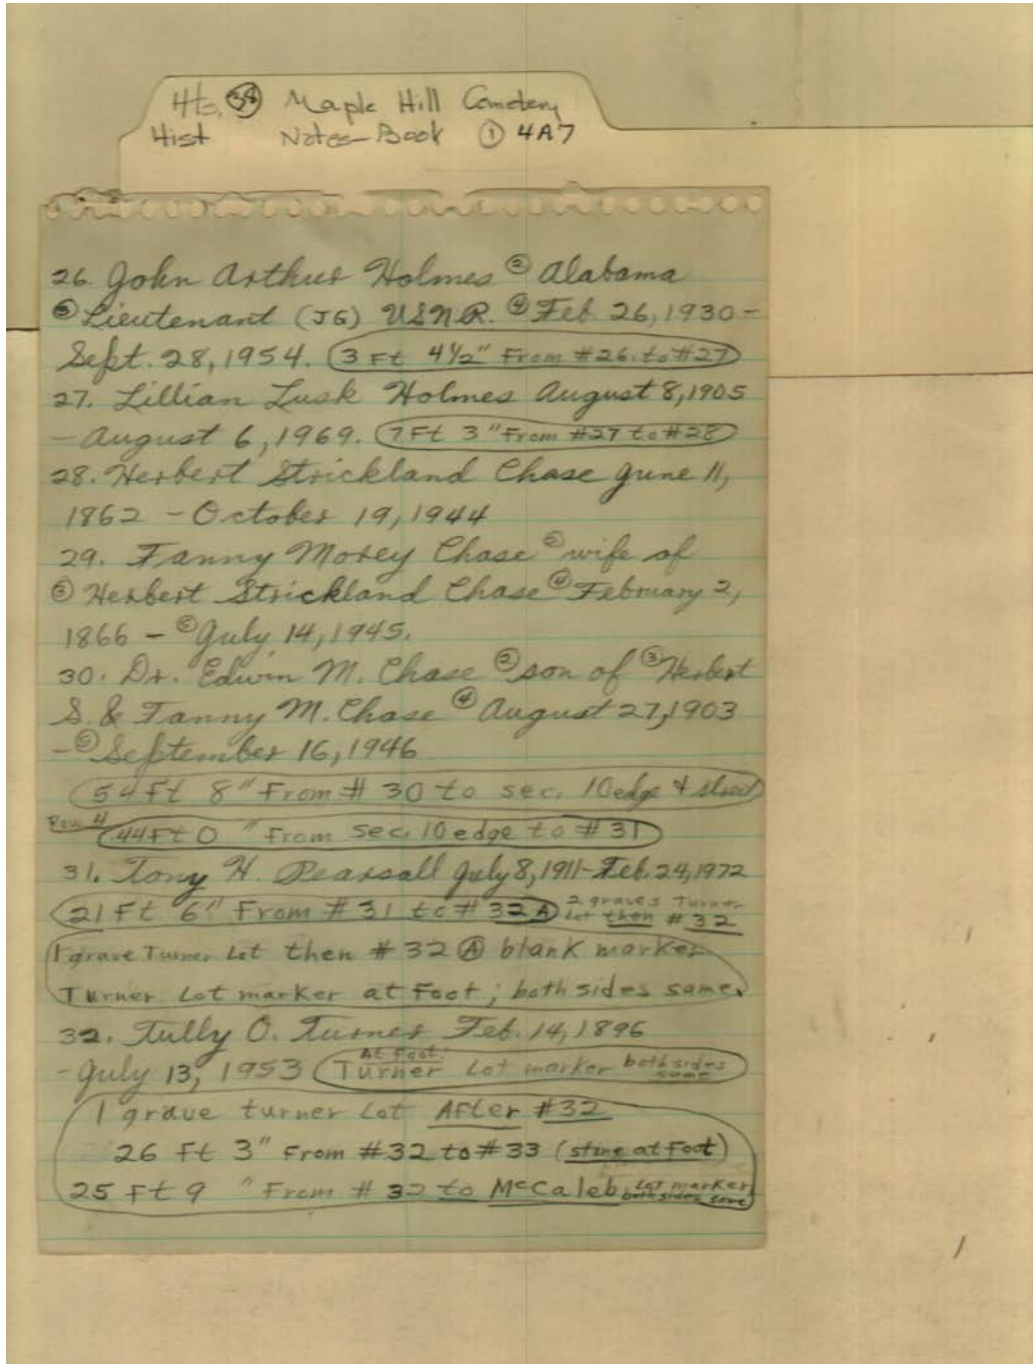 Hts. 38 Maple Hill Cemetery
Hist Notes-Book ① 4A7
26. John Arthur Holmes ② Alabama
③ Lieutenant (JG) USNR. ④ Feb. 26, 1930 -
Sept. 28, 1954. 3 Ft 4½" From #26. to #27
27. Lillian Lusk Holmes August 8, 1905
- August 6, 1969. 7 Ft 3" From #27 to #28
28. Herbert Strickland Chase June 11,
1862 - October 19, 1944
29. Fanny Morey Chase ② wife of
③ Herbert Strickland Chase ④ February 2,
1866 - ⑤ July 14, 1945.
30. Dr. Edwin M. Chase ② son of ③ Herbert
S. & Fanny M. Chase ④ August 27, 1903
- ⑤ September 16, 1946
54 Ft 8" From # 30 to sec. 10 edge & street
Row 4 44 Ft 0 " From Sec. 10 edge to # 31
31. Tony H. Pearsall July 8, 1911 - Feb. 24, 1972
21 Ft 6" From # 31 to # 32 A 2 graves Turner
Lot then # 32
1 grave Turner Lot then # 32 Ⓐ blank marker
Turner Lot marker at Foot; both sides same.
32. Tully O. Turner Feb. 14, 1896
- July 13, 1953 At Foot: Turner Lot marker both sides same
1 grave turner Lot After #32
26 Ft 3" From #32 to #33 (stone at Foot)
25 Ft 9 " From # 32 to McCaleb Lot marker both sides same